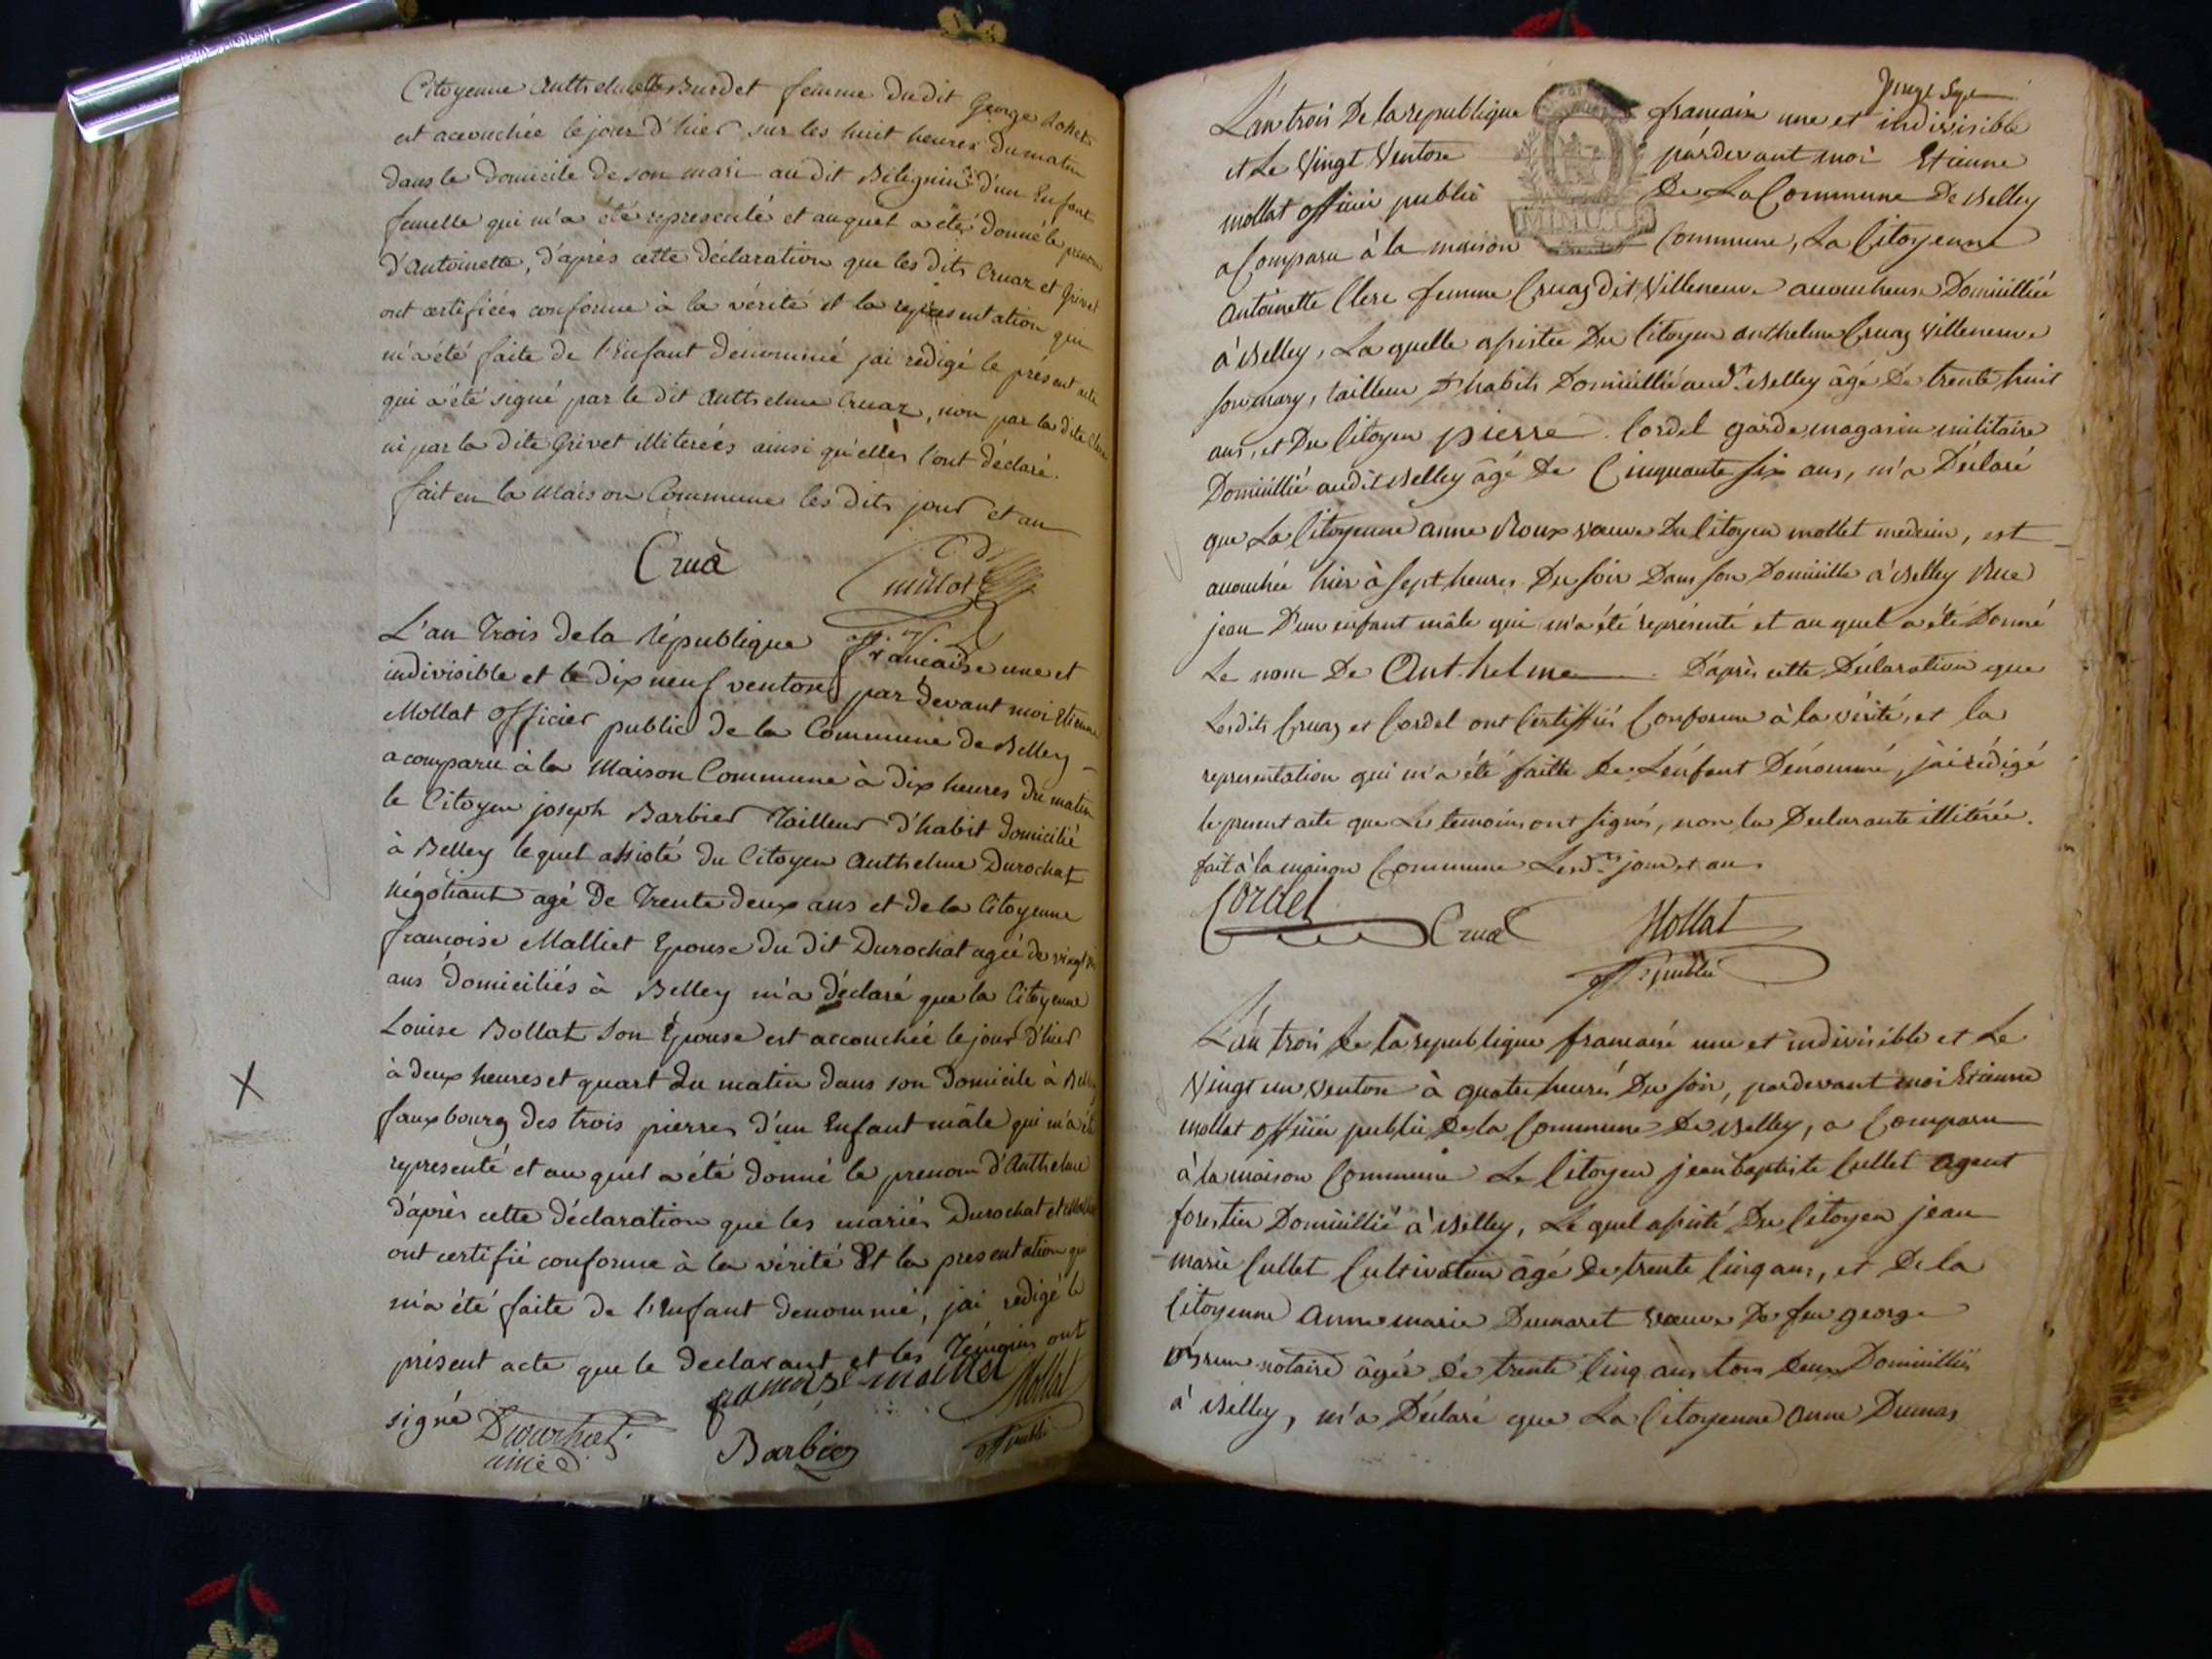 Citoyenne Anthelmette Burdet femme du dit George
est accouchée le jour d'hier sur les huit heures du matin
dans le domicile de son mari au dit Bélignin d'un Enfant
femelle qui m'a été représenté et auquel a été donné le prenom
d'Antoinette, d'après cette déclaration que les dits Cruaz et Grivet
ont certifiées conforme à la vérité et la représentation qui
m'a été faite de l'Enfant dénommé jai rédigé le présent acte
qui a été signé par le dit Anthelme Cruaz, non par la dite Clere
ni par la dite Grivet illiterées ainsi qu'elles l'ont déclaré.
fait en la Maison Commune les dits jour et an
Crua
off.
L'an Trois de la République française une et
indivisible et le dix neuf ventose par devant moi Etienne
Mollat officier public de la Commune de Belley
a comparu à la Maison Commune à dix heures du matin
le Citoyen joseph Barbier Tailleur d'habit domicilié
à Belley lequel assisté du Citoyen Anthelme Durochat
Négotiant agé De Trente deux ans et de la Citoyenne
françoise Malliet Epouse du dit Durochat agée de vingt
ans domiciliés à Belley m'a déclaré que la Citoyenne
Louise Bollat son Epouse est accouchée le jour d'hier
à deux heures et quart du matin dans son Domicile à
fauxbourg des trois pierres d'un Enfant mâle qui m'a été
representé et au quel a été donné le prenom d'Anthelme
d'après cette déclaration que les mariés Durochat et
ont certifié conforme à la vérité Et la presentation qui
m'a été faite de l'Enfant denommé, jai redigé le
présent acte que le déclarant et les Témoins ont
signé
Mollat
Barbier
off public
L'an trois De la republique française une et indivisible
et Le Vingt Ventose pardevant moi Etienne
mollat officier public De La Commune De Belley
a Comparu à la maison Commune, La Citoyenne
antoinette Clere femme Cruaz dit Villeneuve accoucheuse Domicilliée
à Belley, La quelle assistée Du Citoyen anthelme Cruaz Villeneuve
son mary, tailleur D'habits Domicillié aud.t Belley âgé De trente huit
ans, et Du Citoyen pierre Cordel garde magasin militaire
Domicillié audit Belley âgé De Cinquante six ans, m'a Déclaré
que La Citoyenne anne Roux veuve Du Citoyen mollet medecin, est
accouchée hier à sept heures Du soir Dans son Domicille à Belley Rue
jean D'un enfant mâle qui m'a été représenté et au quel a été Donné
Le nom De Anthelme. D'après cette Déclaration que
Lesdits Cruaz et Cordel ont Certiffiés Conforme à la vérité, et la
representation qui m'a été faitte De L'enfant Dénommé, j'ai rédigé
le present acte que Les temoins ont signés, non la Declarante illitérée.
fait à la maison Commune Lesd.ts jour et an.
Cordel
Crua
Mollat
off. public
L'an trois De la republique française une et indivisible et Le
Vingt un Ventose à quatre heures Du soir, pardevant moi Etienne
mollat officier public De la Commune De Belley, a Comparu
à la maison Commune Le Citoyen jean baptiste Cullet agent
forestier Domicillié à Belley, Le quel assisté Du Citoyen jean
marie Cullet Cultivateur âgé De trente Cinq ans, et De la
Citoyenne anne marie Dumaret veuve De feu george
notaire âgée De trente Cinq ans tous Deux Domicilliés
à Belley, m'a Déclaré que La Citoyenne anne Dumas